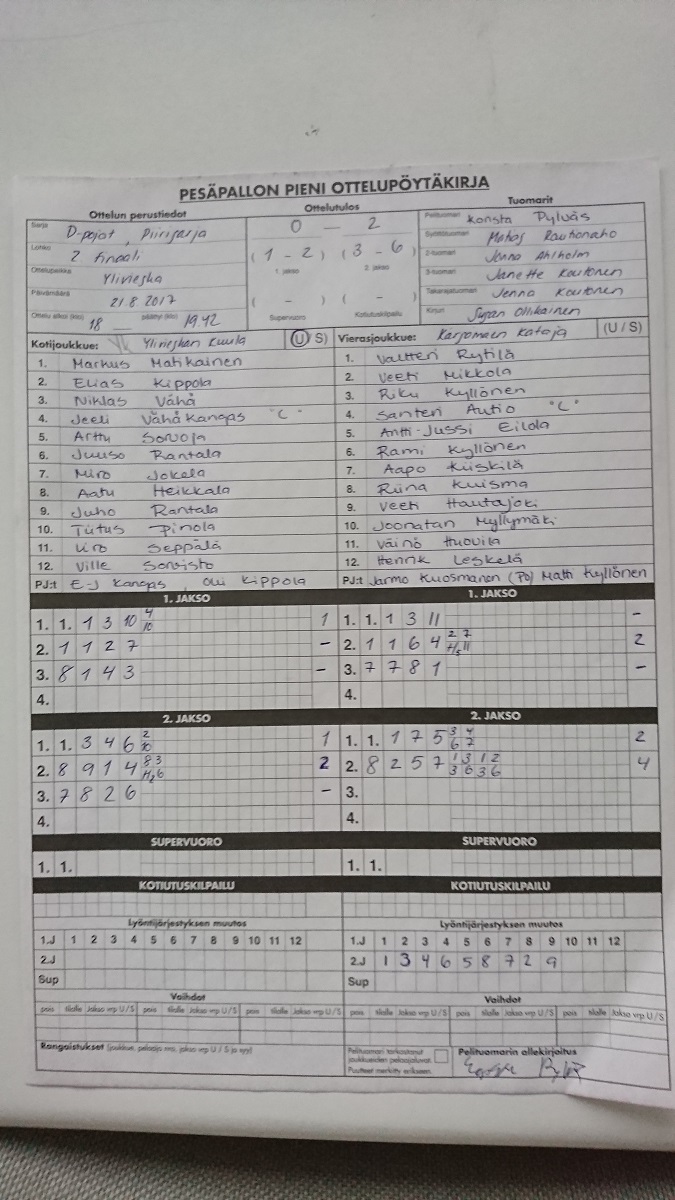 PESÄPALLON PIENI OTTELUPÖYTÄKIRJA
Ottelun perustiedot Ottelutulos Tuomarit
Sarja D-pojat, Piirisarja 0 - 2 Pelituomari Konsta Pylväs
Lohko 2 finaali (1 - 2) (3 - 6) Syöttötuomari Rautionaho
1. jakso 2. jakso 2-tuomari Jenna Ahlholm
Ottelupaikka Ylivieska 3-tuomari Janette Koutonen
Päivämäärä 21.8 2017 ( - ) ( - ) Takarajatuomari Jenna Koutonen
Ottelu alkoi (klo) 18 päättyi (klo) 19.42 Supervuoro Kotiutuskilpailu Kirjuri Ollikainen
Kotijoukkue: Ylivieskan Kuula (U/S) Vierasjoukkue: Kärsämäen Kataja (U/S)
1. Markus Matikainen 1. Valtteri Rytilä
2. Elias Kippola 2. Veeti Mikkola
3. Niklas Vähä 3. Riku Kyllönen
4. Jeeli Vähäkangas "C" 4. Santeri Autio "C"
5. Arttu Sorvoja 5. Antti-Jussi Eilola
6. Juuso Rantala 6. Rami Kyllönen
7. Miro Jokela 7. Aapo Kiiskilä
8. Aatu Heikkala 8. Riina Kuisma
9. Juho Rantala 9. Veeti Hautajoki
10. Tiitus Pinola 10. Joonatan Myllymäki
11. Seppälä 11. Väinö Huovila
12. Ville Sorvisto 12. Henrik Leskelä
PJ:t E-J Kangas, Olli Kippola PJ:t Jarmo Kuosmanen (PJ) Matti Kyllönen
1. JAKSO 1. JAKSO
1. 1. 1 3 10 4 10 1 1. 1. 1 3 11 -
2. 1 1 2 7 - 2. 1 1 6 4 2 7 11 2
3. 8 1 4 3 - 3. 7 7 8 1 -
4. 4.
2. JAKSO 2. JAKSO
1. 1. 3 4 6 2 10 1 1. 1. 1 7 5 3 4 6 7 2
2. 8 9 1 4 8 3 6 2 2. 8 2 5 7 1 3 1 2 3 6 3 6 4
3. 7 8 2 6 - 3.
4. 4.
SUPERVUORO SUPERVUORO
1. 1. 1. 1.
KOTIUTUSKILPAILU KOTIUTUSKILPAILU
Lyöntijärjestyksen muutos Lyöntijärjestyksen muutos
1.J 1 2 3 4 5 6 7 8 9 10 11 12 1.J 1 2 3 4 5 6 7 8 9 10 11 12
2.J 2.J 1 3 4 6 5 8 7 2 9
Sup Sup
Vaihdot Vaihdot
pois tilalle Jakso vrp U/S pois tilalle Jakso vrp U/S pois tilalle Jakso vrp U/S pois tilalle Jakso vrp U/S pois tilalle Jakso vrp U/S pois tilalle Jakso vrp U/S
Rangaistukset (joukkue, pelaaja nro, jakso vrp U / S ja syy) Pelituomari tarkastanut joukkueiden pelaajaluvat. Pelituomarin allekirjoitus
Puutteet merkitty erikseen.